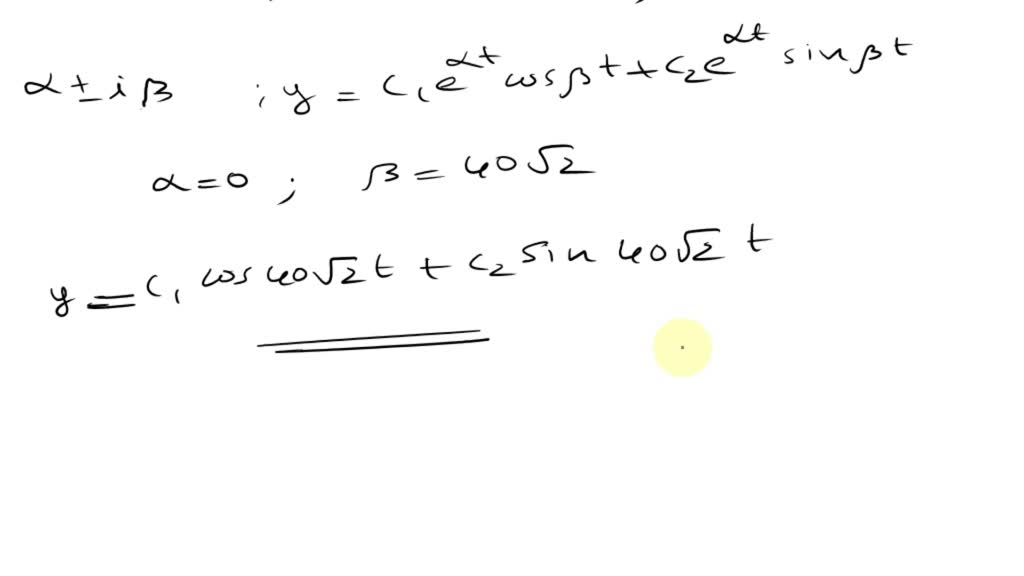 α ± iβ ; y = c₁e^{αt} cosβt + c₂e^{αt} sinβt
α = 0 ; β = 40√2
y = c₁ cos 40√2 t + c₂ sin 40√2 t